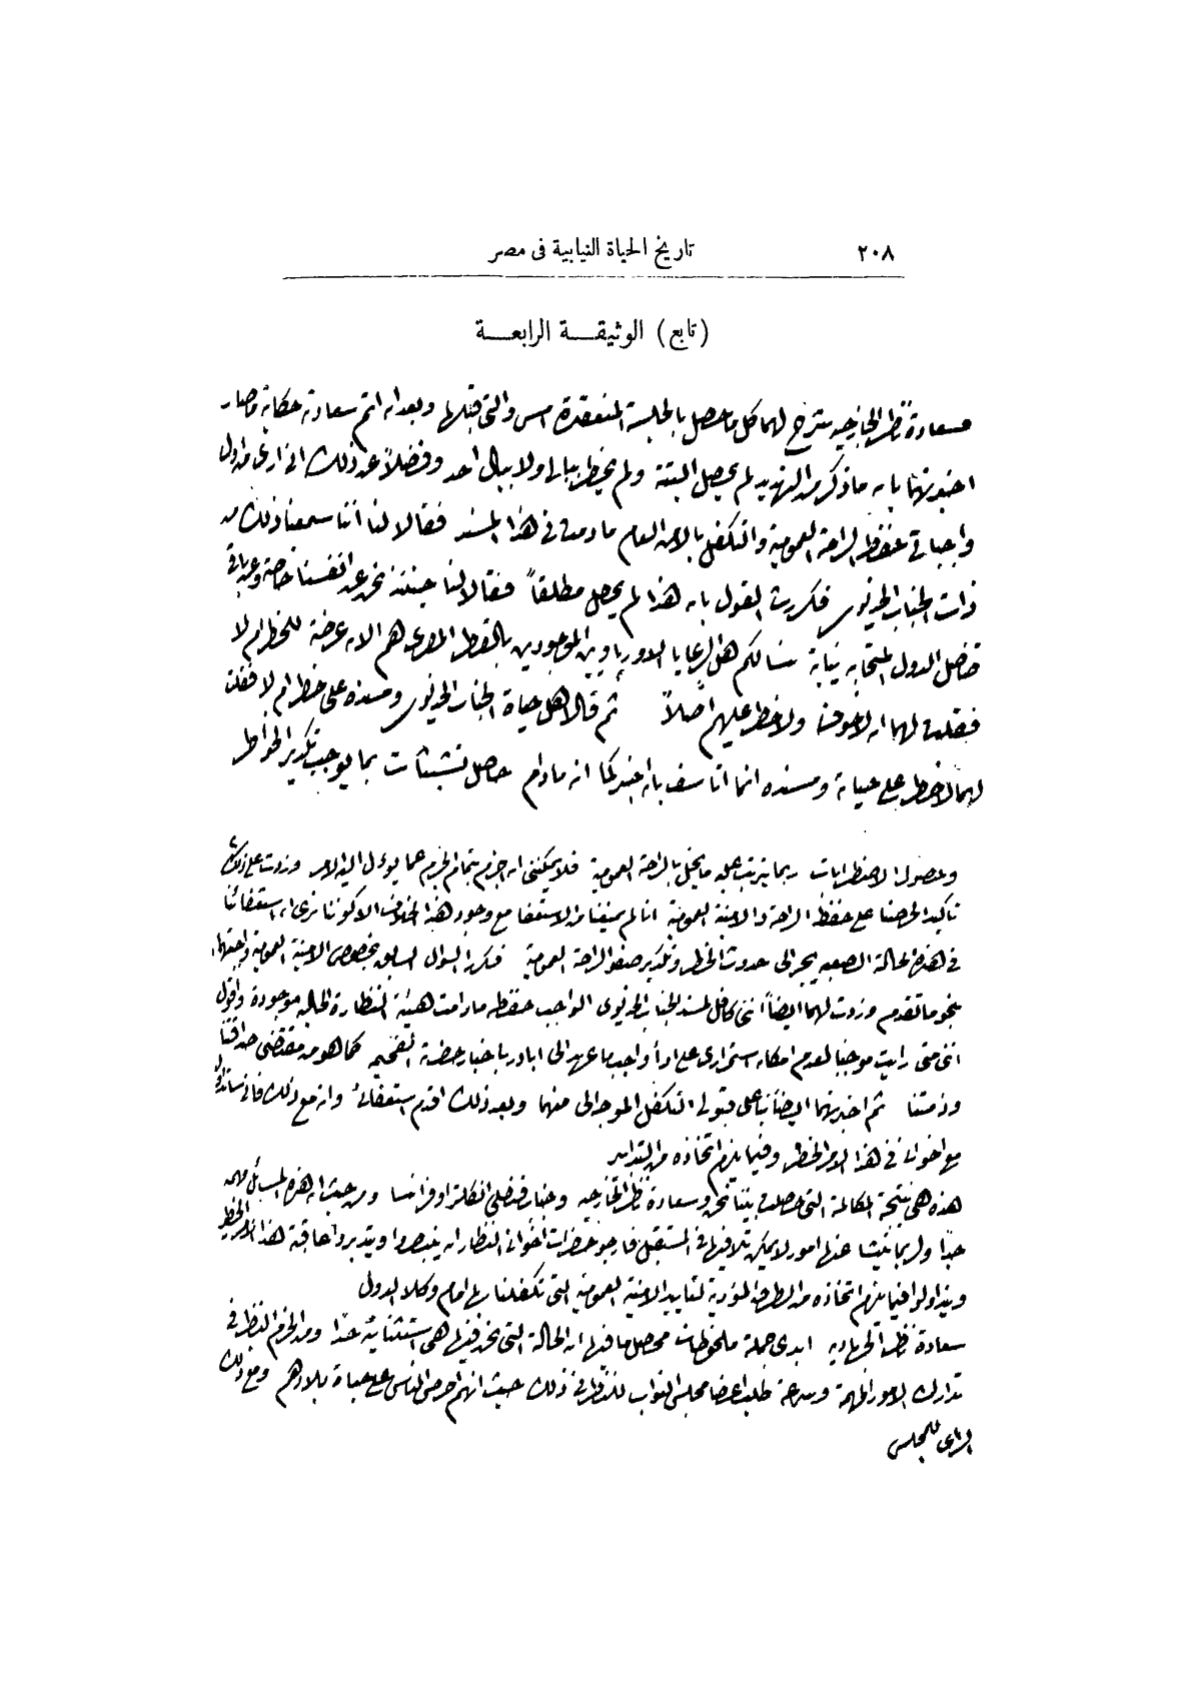 ٢٠٨
تاريخ الحياة النيابية فى مصر
(تابع) الوثيقة الرابعة
سعادة ناظر الخارجيه شرح لهما كل ما حصل بالجلسة المنعقدة امس والتى قبلها وبعد انه اتم سعادته حكاية ما صار
اخبرتهما بانه ما ذكر من التهديد لم يحصل البتة ولم يخطر ببالى ولا ببال احد وفضلاً عن ذلك انى ارى من اول
واجباتى حفظ الراحة العمومية والتكفل بالامن العام ما دمت فى هذا المسند فقالا لنا اننا سمعنا ذلك من
ذات الجناب الخديوى فكررت القول بانه هذا لم يحصل مطلقاً فقالا لنا حينئذ نحن عن انفسنا خاصة وعن باقى
قناصل الدول المتحابه نيابة نسألكم هل الرعايا الاورباويين الموجودين بالقطر المصرى هم الان عرضة للخطر ام لا
فقلت لهما انه لا خوف ولا خطر عليهم اصلاً ثم قالا هل حياة الجناب الخديوى ومسنده على خطر ام لا فقلت
لهما لا خطر على حياته ومسنده انما اتأسف بانه اخبركما انه مادام حاصل تشبثات بما يوجب تكدير الخواطر
وحصول الاضطرابات ربما يترتب عليه ما يخل بالراحة العمومية فلا يمكننى انه اجزم بتمام الجزم عما يؤل اليه الامر وزدت على ذلك
تأكيد الحرصنا على حفظ الراحة والامنية العمومية انا لم يمنعنا من الاستعفا مع وجود هذا الخلاف الا كوننا نرى انه استعفائنا
فى هذه الحالة الصعبه يجر الى حدوث الخطر وتكدير صفو الراحة العمومية فكررا السؤال السابق بخصوص الامنية العمومية واجبتهما
بنحو ما تقدم وزدت لهما ايضاً اننى كافل لمسند الجناب الخديوى الواجب حفظه ما دامت هيئة النظارة الحاليه موجودة واقول
اننى متى رايت موجبا لعدم امكان استمرارى على اداء واجب ما عهد الى ابادر باخبار حضرة القنصليه كما هو من مقتضى صداقتنا
وذمتنا ثم اخبرتهما ايضاً بناء على قبولى التكفل الموجه الى منهما وبعد ذلك اقدم استعفائى وانه مع ذلك فانى سأتداول
مع اخوانى فى هذا الامر الخطر وفيما يلزم اتخاذه من التدابير
هذه هى نتيجة المكالمة التى حصلت بيننا نحن وسعادة ناظر الخارجيه وجناب قنصلى انكلترا وفرانسا ومن حيث انه هذه المسائل مهمه
جداً وربما ينشا عنها امور لا يمكن تلافيها فى المستقبل فارجو حضرات اخوانى النظار انه يتبصروا ويتدبروا عاقبة هذا الامر الخطر
ويتداولوا فيما يلزم اتخاذه من الطرق المؤدية لتأييد الامنية العمومية التى تكفلنا بها امام وكلا الدول
سعادة ناظر الجهاديه ابدى جملة ملحوظات محصل ما فيها انه الحالة التى نحن فيها هى استثنائية جداً ومن الحزم النظر فى
تدارك الامور المهمة وسرعة طلب اعضا مجلس النواب للنظر فى ذلك حيث انهم احرص الناس على حياة بلادهم ومع ذلك
الراى للمجلس